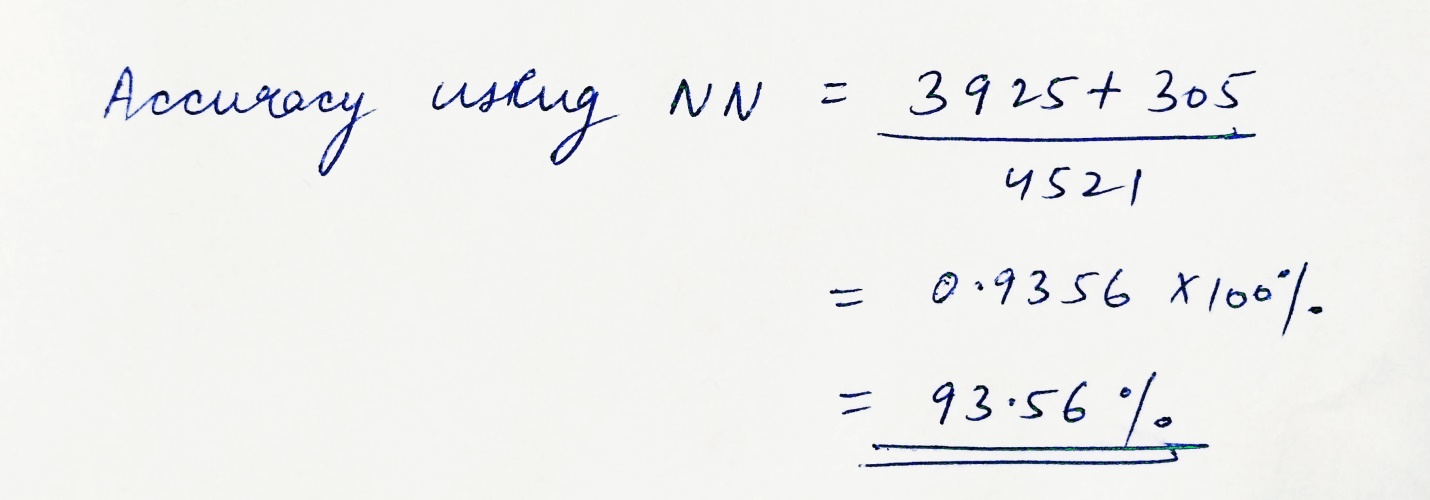 Accuracy using NN = 3925 + 305
4521
= 0.9356 × 100%.
= 93.56 %